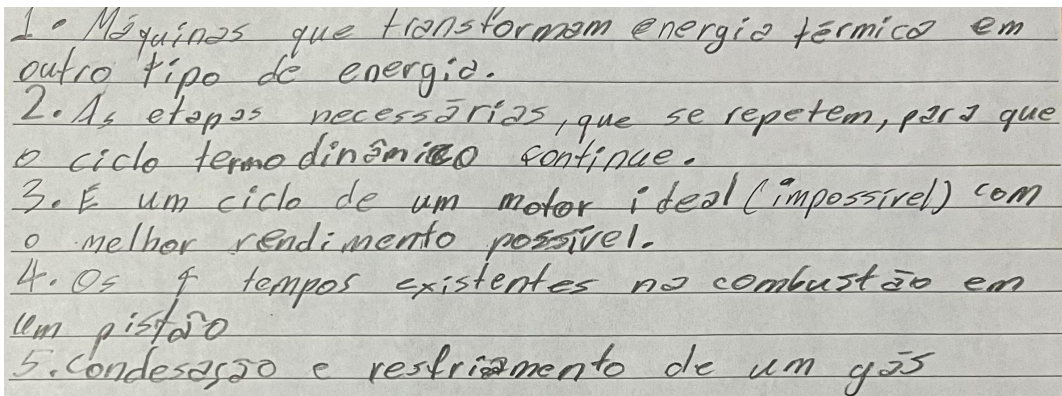 1. Máquinas que transformam energia térmica em
outro tipo de energia.
2. As etapas necessárias, que se repetem, para que
o ciclo termodinâmico continue.
3. É um ciclo de um motor ideal (impossível) com
o melhor rendimento possível.
4. Os 4 tempos existentes na combustão em
um pistão
5. Condesação e resfriamento de um gás